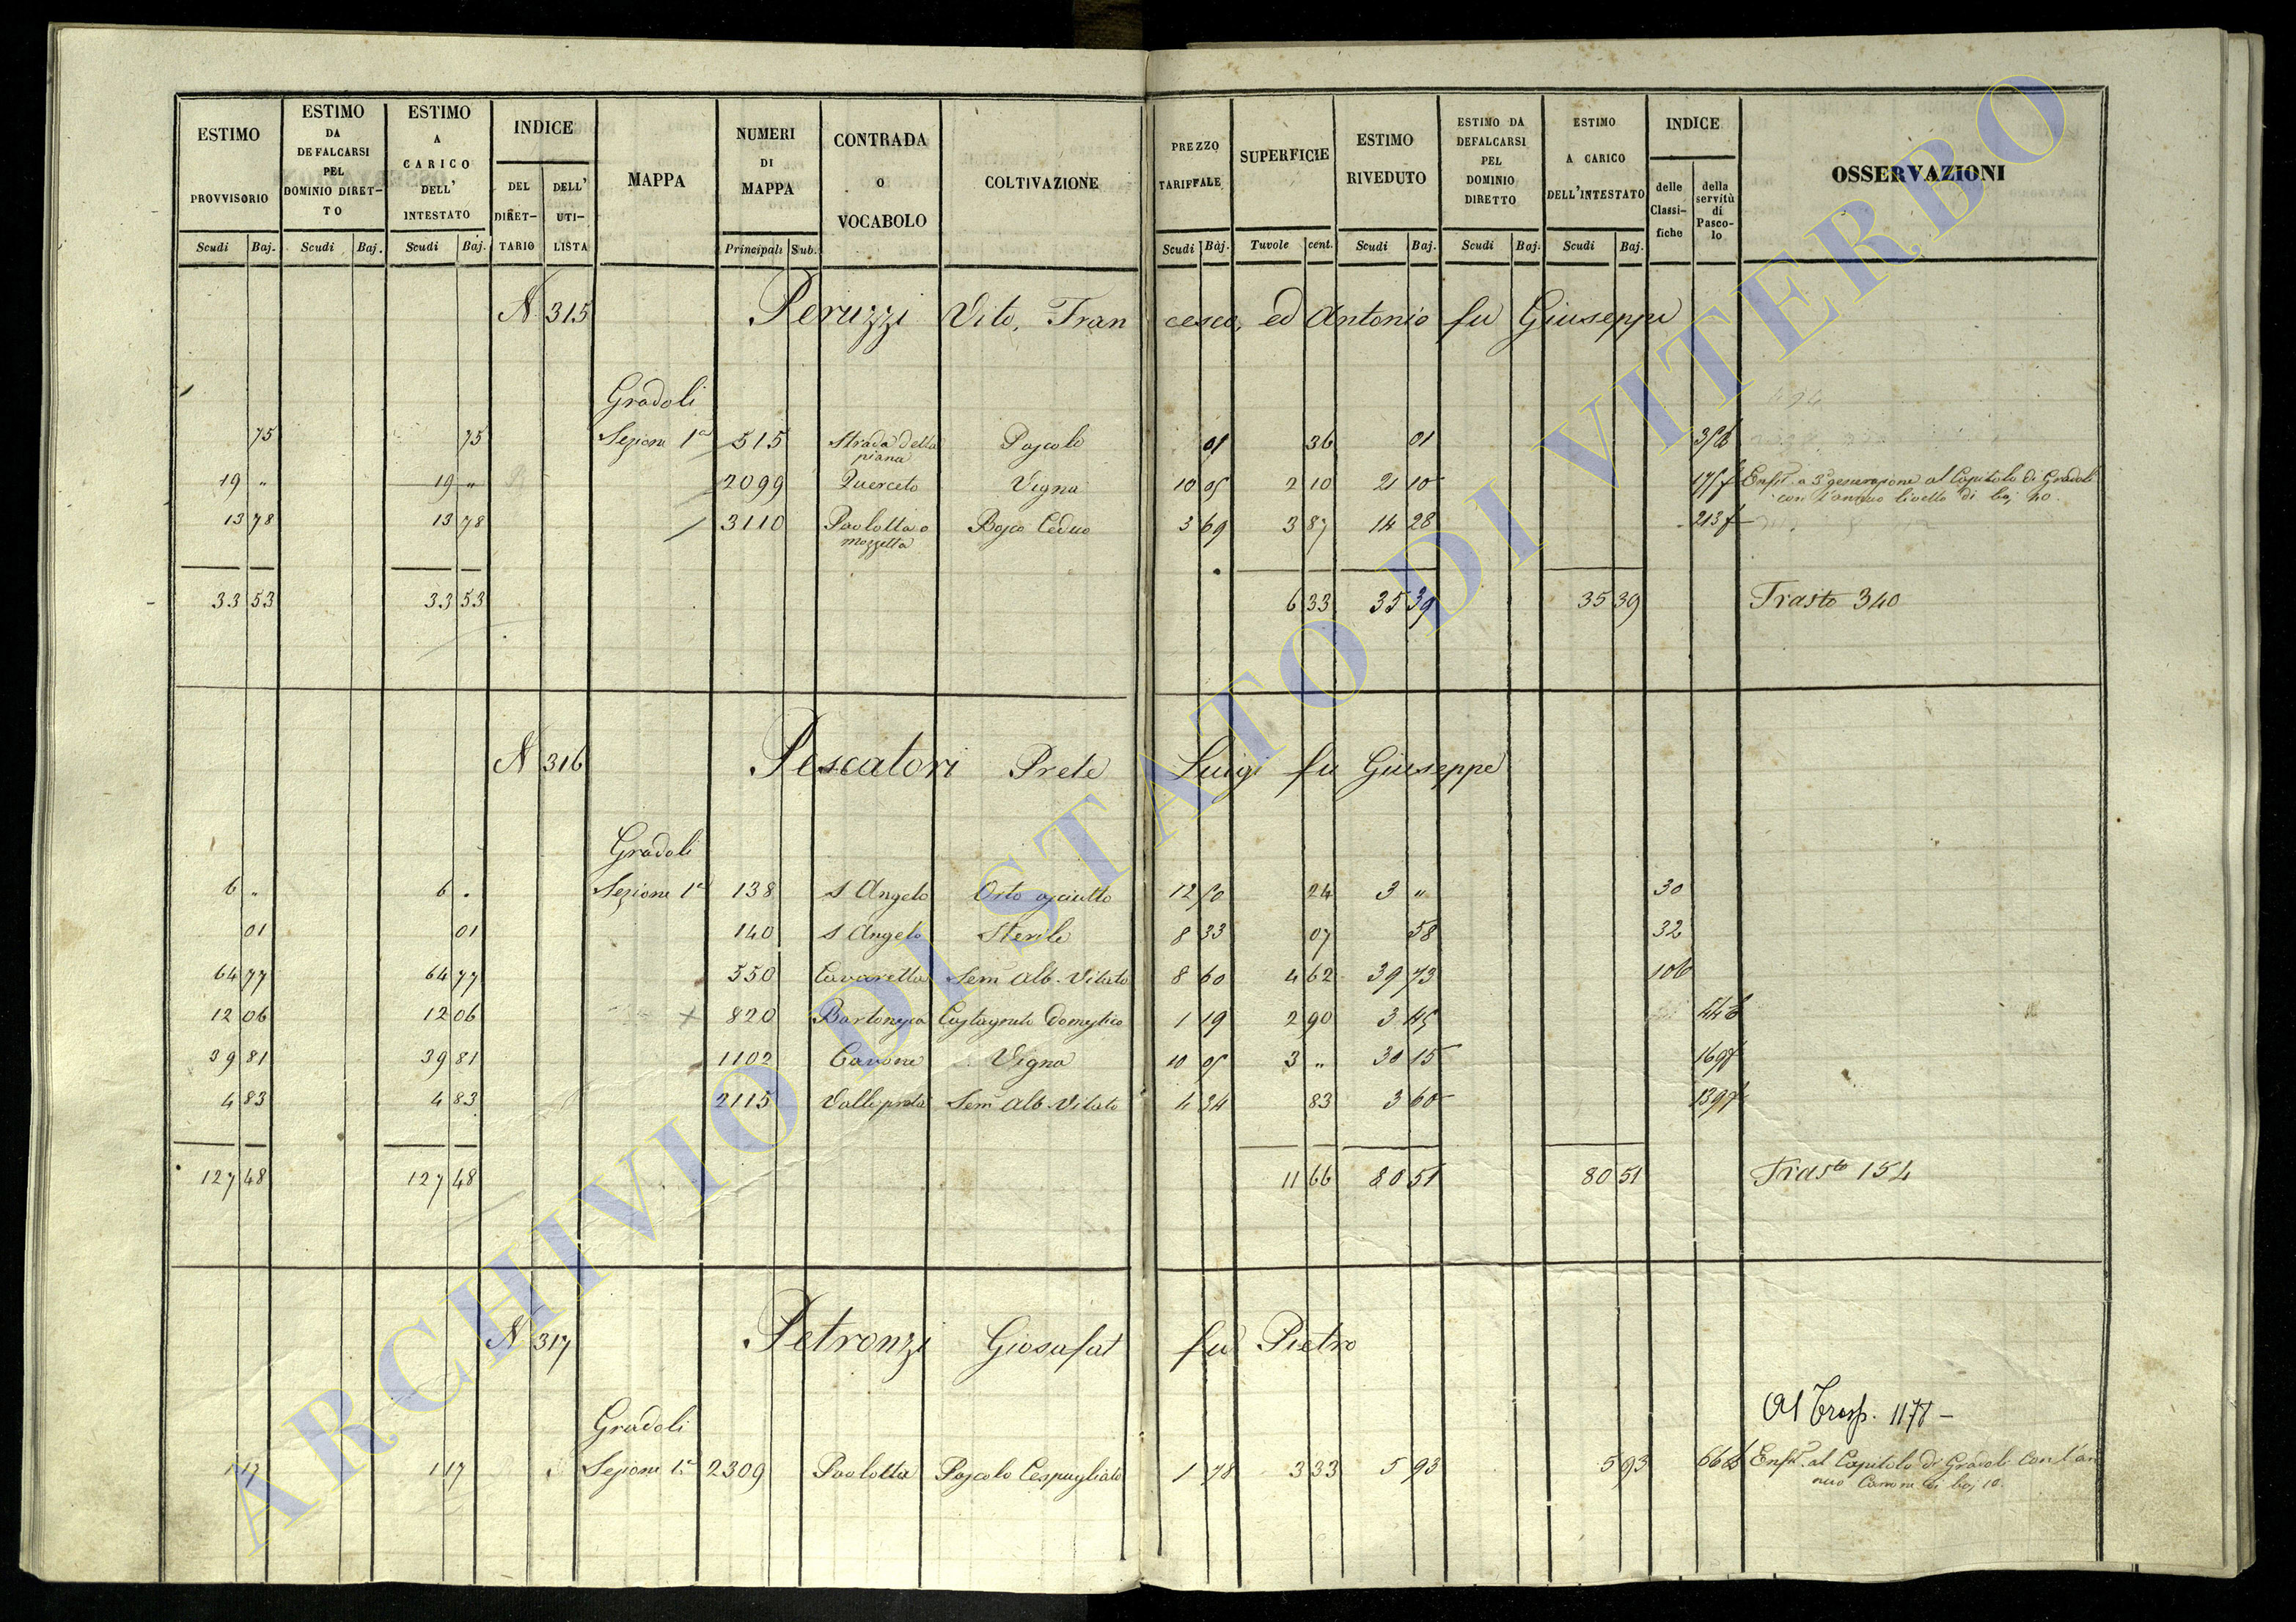 ESTIMO PROVVISORIO Scudi Baj. | ESTIMO DA DEFALCARSI PEL DOMINIO DIRET-TO Scudi Baj. | ESTIMO A CARICO DELL' INTESTATO Scudi Baj. | INDICE DEL DIRET-TARIO DELL' UTI-LISTA | MAPPA | NUMERI DI MAPPA Principali Sub. | CONTRADA O VOCABOLO | COLTIVAZIONE | PREZZO TARIFFALE Scudi Baj. | SUPERFICIE Tavole cent. | ESTIMO RIVEDUTO Scudi Baj. | ESTIMO DA DEFALCARSI PEL DOMINIO DIRETTO Scudi Baj. | ESTIMO A CARICO DELL'INTESTATO Scudi Baj. | INDICE delle Classi-fiche della servitù di Pasco-lo | OSSERVAZIONI
N 315 Peruzzi Vito, Francesco, ed Antonio fu Giuseppe
Gradoli
75 75 Sezione 1a 515 Strada della piana Pascolo 01 36 01
19 " 19 " 2099 Querceto Vigna 10 05 2 10 21 10 Enft. a 3a generazione al Capitolo di Gradoli
con l'annuo livello di baj 40.
13 78 13 78 3110 Paolotta o mozzetta Bosco Ceduo 3 69 3 87 14 28 213
33 53 33 53 6 33 35 39 35 39 Trasto 340
N 316 Pescatori Prete Luigi fu Giuseppe
Gradoli
6 " 6 " Sezione 1a 138 S Angelo Orto asciutto 12 50 24 3 " 30
01 01 140 S Angelo Sterile 8 33 07 58 32
64 77 64 77 550 Cavarella Sem Alb. Vitato 8 60 4 62 39 73 106
12 06 12 06 820 Castagneto Domestico 1 19 2 90 3 45 44
39 81 39 81 1102 Cavone Vigna 10 05 3 " 30 15 169
4 83 4 83 2115 Sem Alb. Vitato 4 34 83 3 60 139
127 48 127 48 11 66 80 51 80 51 Trasto 154
N 317 Petronzi Giosafat fu Pietro
Al Trasp. 1178 -
Gradoli
1 17 1 17 Sezione 1a 2309 Paolotta Pascolo Cespugliato 1 78 3 33 5 93 5 93 66 Enft. al Capitolo di Gradoli con l'an
nuo Canone di baj 10.
ARCHIVIO DI STATO DI VITERBO